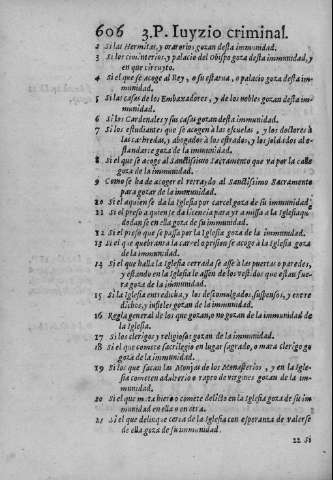 606 3.P. Iuyzio criminal.
2 Si las Hermitas, y oratorios gozan desta immunidad.
3 Si los ciminterios, y palacio del Obispo goza desta immunidad, y
en que circuyto.
4 Si el que se acoge al Rey, o su estatua, o palacio goza desta im-
munidad.
5 Si las casas de los Embaxadores, y de los nobles gozan desta im-
munidad.
6 Si los Cardenales y sus casas gozan desta immunidad.
7 Si los estudiantes que se acogen à las escuelas, y los doctores à
las cathredas, abogados à los estrados, y los soldados al e-
standarte goza de la immunidad.
8 Si el que se acoge al Sanctissimo Sacramento que va por la calle
goza de la immunidad.
9 Como se ha de acoger el retraydo al Sanctissimo Sacramento
para gozar de la immunidad.
10 Si el a quien se da la Iglesia por carcel goza de su immunidad.
11 Si el preso a quien se da licencia para yr a missa a la Iglesia qu
dandose en ella goza de su immunidad.
12 Si el preso que se passa por la Iglesia goza de la immunidad.
13 Si el que quebranta la carcel o prision se acoge à la Iglesia goza
de la immunidad.
14 Si el que halla la Iglesia cerrada se asse à las puertas o paredes,
y estando en la Iglesia le assen de los vestidos que estan fue-
ra goza de la immunidad.
15 Si la Iglesia entredicha, y los descomulgados, suspensos, y entre
dichos, y infieles gozan de la immunidad.
16 Regla general de los que gozan, o no gozan de la immunidad de
la Iglesia.
17 Si los clerigos y religiosos gozan de la immunidad.
18 Si el que comete sacrilegio en lugar sagrado, o mata clerigo go
za de la immunidad.
19 Si los que sacan las Monjas de los Monasterios, y en la Igle-
sia cometen adulterio o rapto de virgines gozan de la im-
munidad.
20 Si el que mata hiere o comete delicto en la Iglesia goza de su im
munidad en ella o en otra.
21 Si el que delinque cerca de la Iglesia con esperanza de valerse
de ella goza de su immunidad.
22 Si